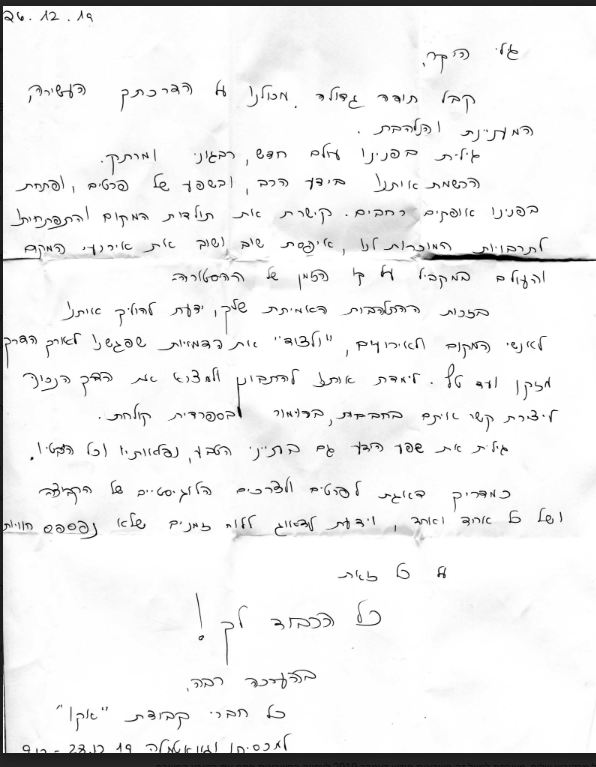 26.12.19
גלי היקר,
קבל תודה גדולה מכולנו על הדרכתך העשירה,
המעניינת והנלהבת.
גילית בפנינו עולם חדש, רבגוני ומרתק.
הרשמת אותנו בידע הרב, ובשפע של פרטים, ופתחת
בפנינו אופקים רחבים. קישרת את תולדות המקום והתפתחותו
לתרבויות המוכרות לנו, איפסת שוב ושוב את אירועי המקום
והעולם במקביל על קו הזמן של ההסטוריה.
בזכות ההתלהבות האמיתית שלך, ידעת להוליך אותנו
לאנשי המקום ולאירועים, "ולצוד" את הדמויות שפגשנו לאורך הדרך
מזקן ועד טף. לימדת אותנו להתבונן ולמצוא את הדרך הנכונה
ליצירת קשר איתם בחביבות, בהומור ובספרדית קולחת.
גילית את שפע הידע גם בתייני הטבע, נפלאותיו וכל הצטיו.
כמדריך דאגת לפרטים ולצרכים הלוגיסטיים של הקבוצה
ושל כל אחד ואחד, וידעת לדאוג ללוח זמנים שלא נפספס חוויות
על כל זאת
כל הכבוד לך!
בהערכה רבה,
כל חברי קבוצת "אקו"
למכסיקו וגואטמלה 23.12.19 -